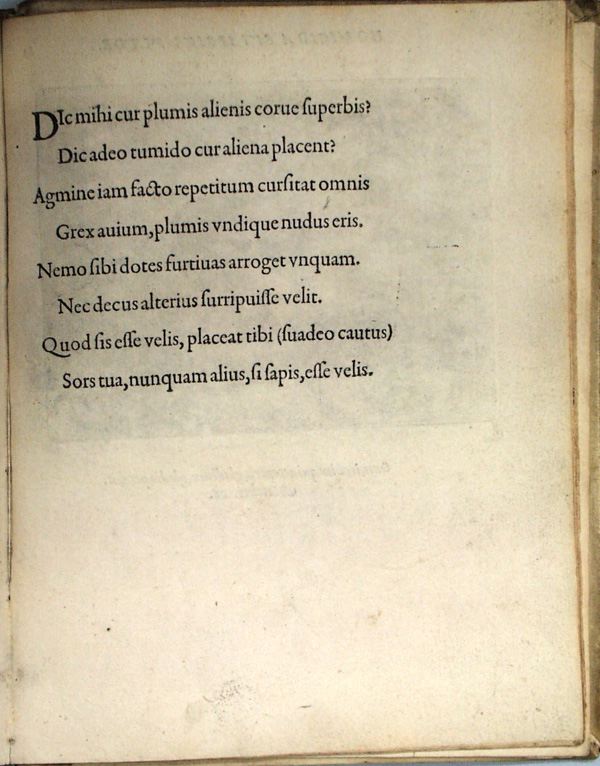 DIc mihi cur plumis alienis corue ſuperbis?
Dic adeo tumido cur aliena placent?
Agmine iam facto repetitum curſitat omnis
Grex auium, plumis vndique nudus eris.
Nemo ſibi dotes furtiuas arroget vnquam.
Nec decus alterius ſurripuiſſe velit.
Quod ſis eſſe velis, placeat tibi (ſuadeo cautus)
Sors tua, nunquam alius, ſi ſapis, eſſe velis.